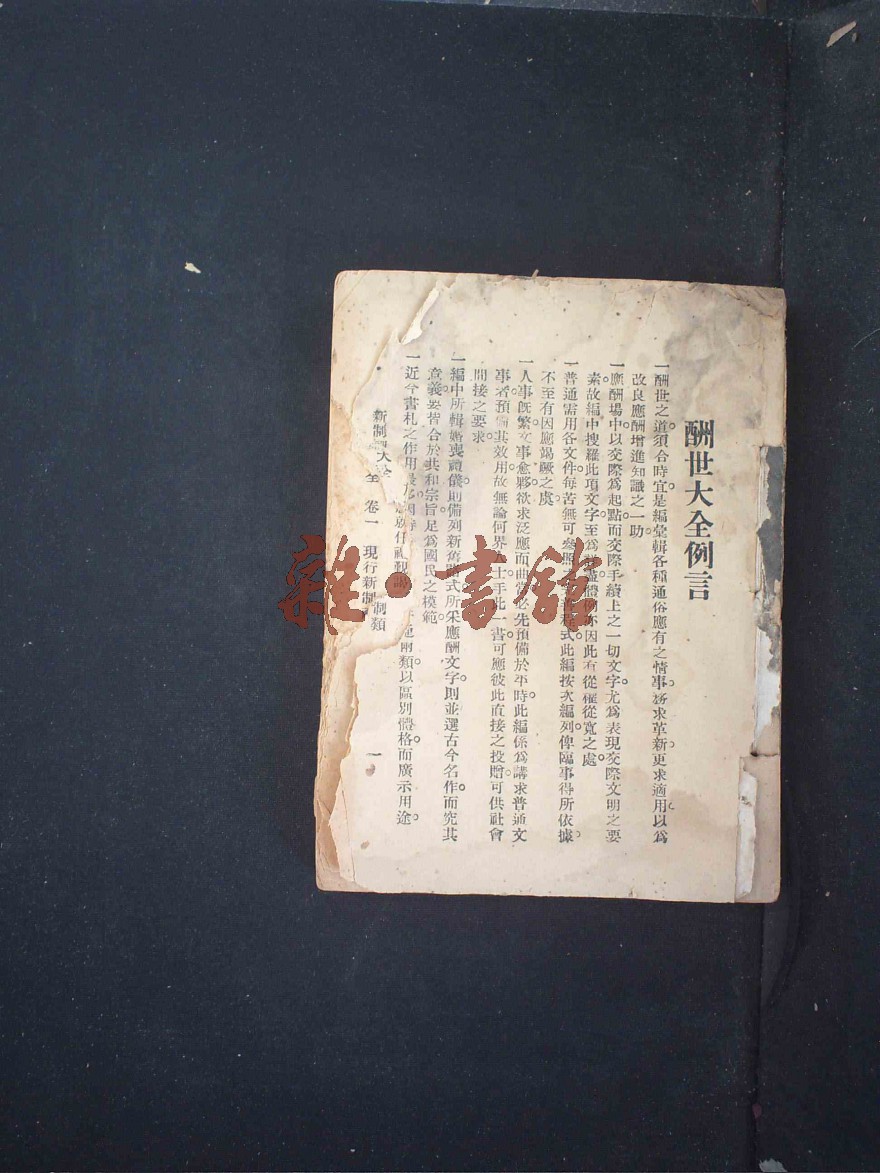 酬世大全例言
一酬世之道須合時宜是編彙輯各種通俗應有之情事務求革新更求適用以爲
改良應酬增進知識之一助
一應酬場中以交際爲起點而交際手續上之一切文字尤爲表現交際文明之要
素故編中搜羅此項文字至爲體亦因此有從權從寬之處
一普通需用各文件每苦無可參照程式此編按次編列俾臨事得所依據
不至有因應竭蹶之處
一人事旣繁文事愈夥欲求泛應而曲當必先預備於平時此編係爲講求普通文
事者預備其效用故無論何界人士手此一書可應彼此直接之投贈可供社會
間接之要求
一編中所輯婚喪禮儀則備列新舊格式所采應酬文字則並選古今名作而究其
意義要皆合於共和宗旨足爲國民之模範
一近今書札之作用最兩類以區別體格而廣示用途
新制大全 卷一 現行新制 制類 一
雜·書館